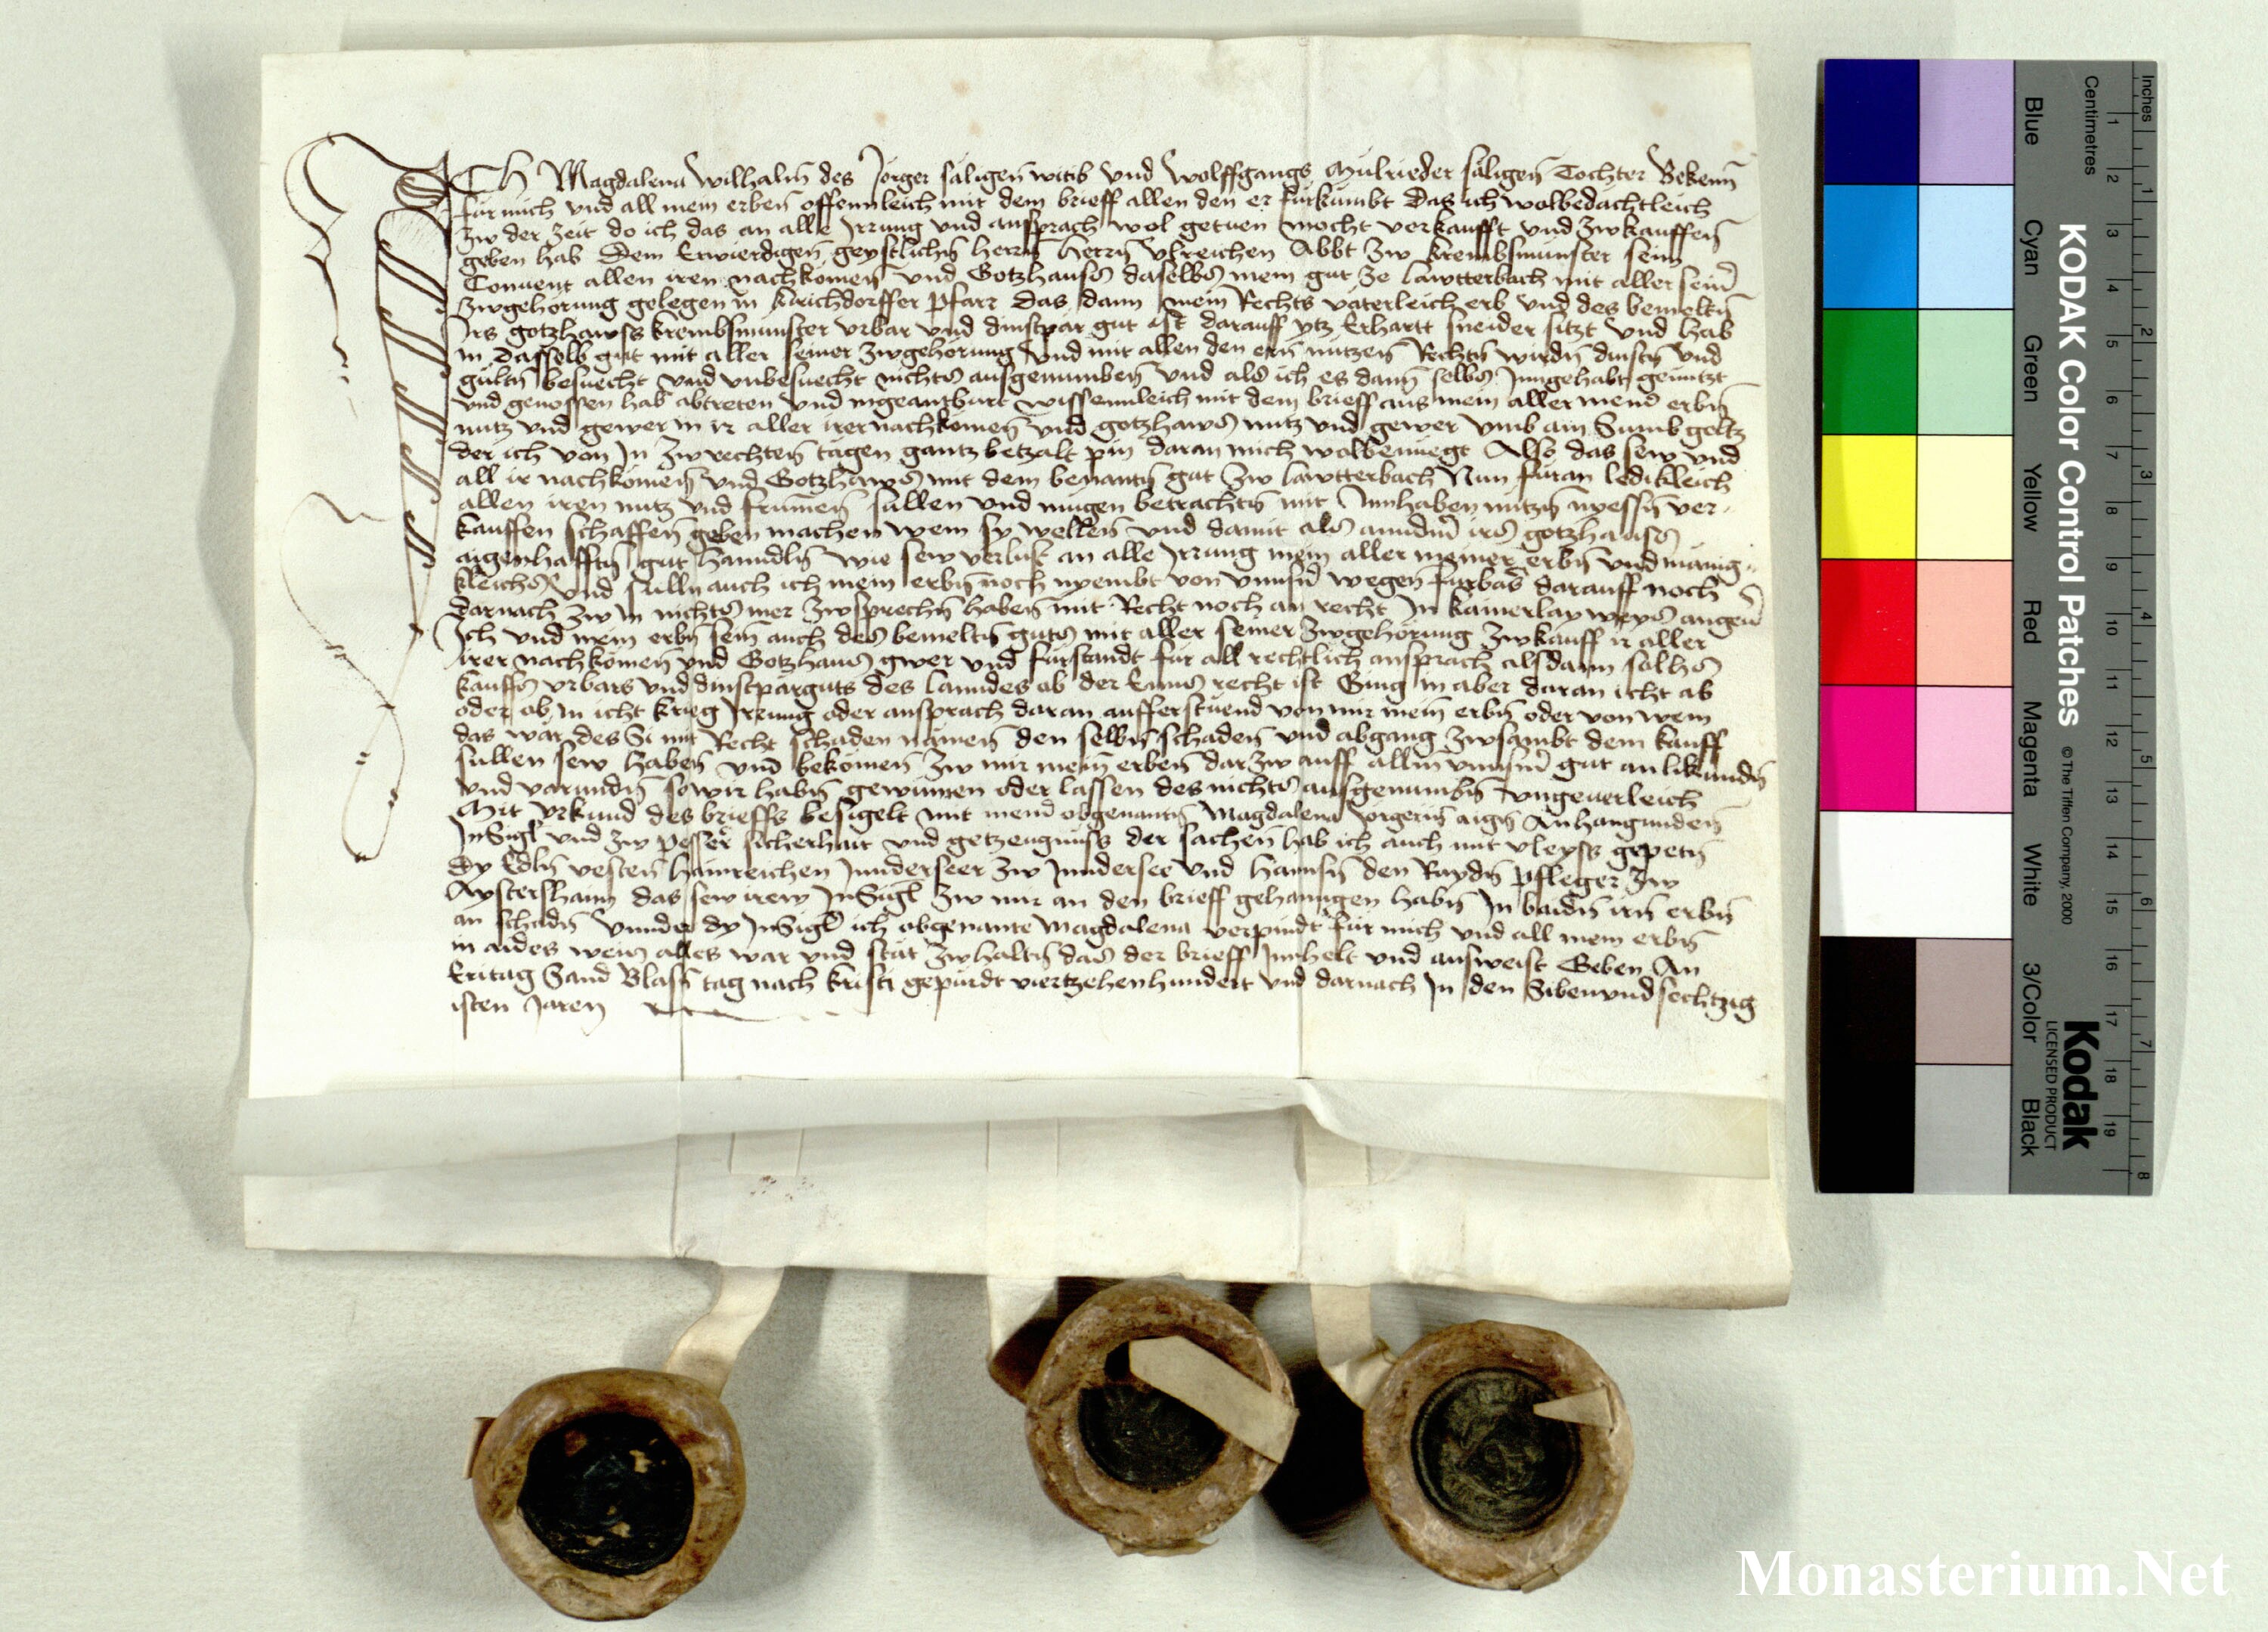 ICh Magdalena Wilhalm des Jörger säligen witib vnd Wolffgangs Mülrieder säligen Tochter Bekenn
für mich vnd all mein erben offennleich mit dem brieff allen den er fürkumbt Das ich wolbedachtleich
zw der zeit do ich das an alle Irrung vnd ansprach wol getuen mocht verkaufft vnd zwkauffen
geben hab Dem Erwierdigen geystlichen herrn herrn Vlreichen Abbt zw krembsmünster seim
Conuent allen iren nachkomen vnd Gotzhauss daselbs mein gut ze lawtterbach mit aller seiner
zwgehorung gelegen in kirichdorffer pfarr das dann mein Rechts väterleich erb vnd des bemeltn
Irs gotzhawss krembsmünster vrbar vnd dinstpar gut ist darauff ytz Erhartt sneider sitzt vnd hab
in dasselb gut mit aller seiner zwgehorung vnd mit allen den ern nützen Rechtn wirdn dinstn vnd
gültn besuecht vnd vnbesuecht nichts ausgenumben vnd als ich es dann selbs Inngehabt genützt
vnd genossen hab abtreten vnd ingeantburt wissennleich mit dem brieff aus mein aller meiner erbn
nutz vnd gewer in ir aller irer nachkomen vnd gotzhaws nutz vnd gewer vmb ain Sumb geltz
der ich von In zw rechten tägen gantz betzalt pin daran mich wolbenuegt Also das sew vnd
all ir nachkomen vnd Gotzhaws mit dem benantn gut zw lawtterbach Nun füran ledikleich
allen iren nutz vnd frumen süllen vnd mügen betrachtn mit Innhaben nützn nyessn ver-
kauffen schaffen geben machen wem sy wellen vnd damit als annderm irs gotzhauss
aigenhafftn gut hanndln wie sew verlust an alle Irrung mein aller meiner erbn vnd mänig-
kleichs vnd sulln auch ich mein erbn noch nyembt von vnnsern wegen fürbas darauff noch
darnach zw in nichts mer zwsprechn haben mit Recht noch an recht In kainerlay weys angeuer
Ich vnd mein erbn sein auch des bemeltn guts mit aller seiner zwgehorung zwkauff ir aller
irer nachkomen vnd Gotzhaus gwer vnd fürstandt für all rechtlich ansprach alsdann solhs
kauffs vrbars vnd dinstparguts des lanndes ob der Enns recht ist Ging in aber daran icht ab
oder ob in icht krieg Irrung oder ansprach daran aufferstuend von mir mein erbn oder von wem
das wär des Si mit Recht schaden nämen den selbn schaden vnd abgang zwsambt dem kauff
sullen sew haben vnd bekomen zw mir mein erben darzw auff allm vnnserm gut an likundn
vnd varundn so wir habn gewinnen oder lassen des nichts ausgenumbn vngeuerleich
Mit vrkund des brieffs besigelt mit meinem obgenantn Magdalena Jörgerin aign Anhangunden
InSigl vnd zw pesser sicherhait vnd getzeugnuss der sachen hab ich auch mit vleyss gepetn
dy Edln vesten hainreichen Innderseer zw Inndersee vnd hannsn den Raydn pfleger zw
Aystershaim das sew irew InSigl zw mir an den brieff gehanngen habn In baidn irn erbn
an schadn Vnnder dy InSigl ich obgenante Magdalena verpindt für mich vnd all mein erbn
in aides weis alles war vnd stät zwhaltn das der brieff Innhelt vnd ausweist Geben An
Eritag Sand Blasn tag nach kristi gepürdt viertzehenhundert vnd darnach In den Sibenvndsechtzig
isten Jaren
Inches
Centimetres
KODAK Color Control Patches © The Tiffen Company, 2000
Kodak
LICENSED PRODUCT
Blue
Cyan
Green
Yellow
Red
Magenta
White
3/Color
Black
1 2 3 4 5 6 7 8 9 10 11 12 13 14 15 16 17 18 19
1 2 3 4 5 6 7 8
Monasterium.Net